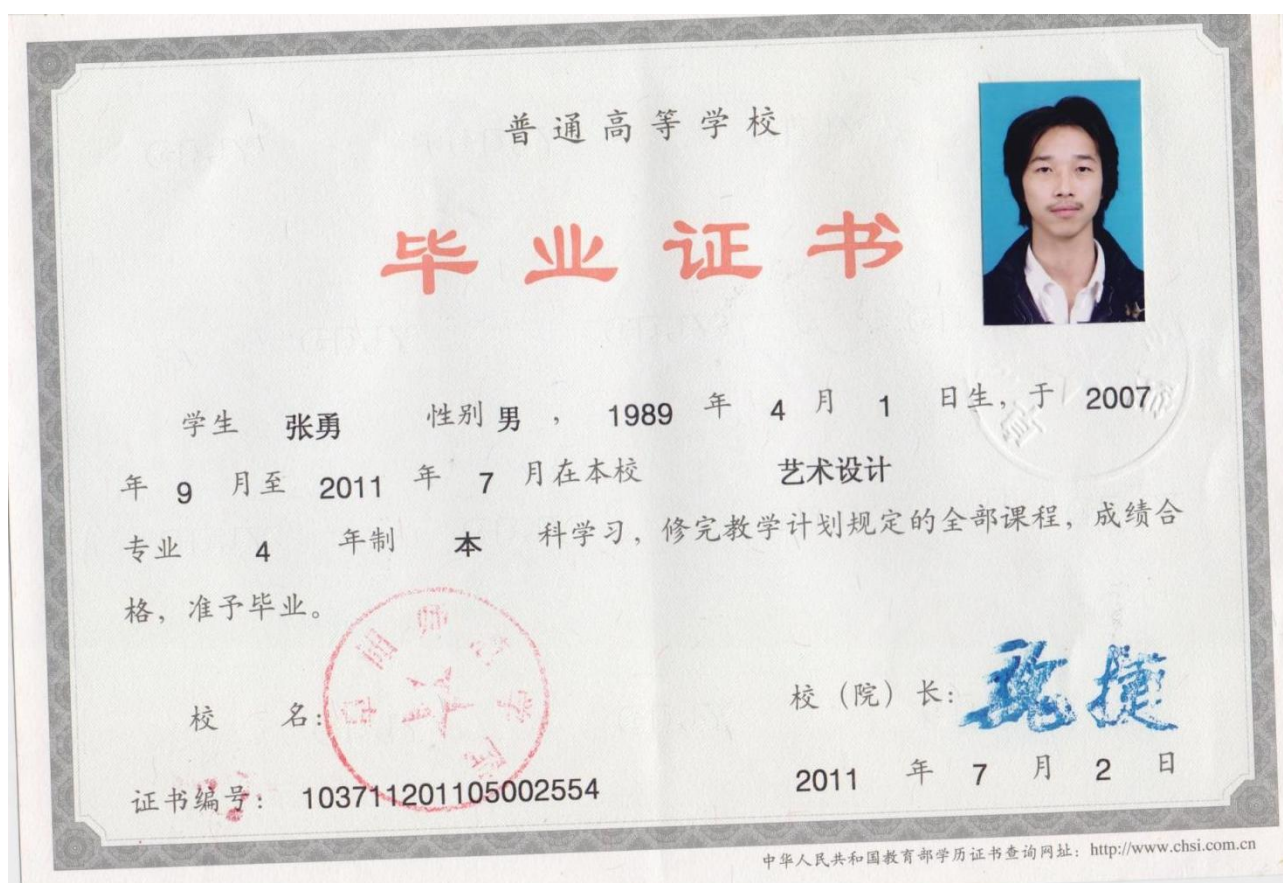 普通高等学校
毕业证书
学生 张勇 性别 男 , 1989 年 4 月 1 日生, 于 2007
年 9 月至 2011 年 7 月在本校 艺术设计
专业 4 年制 本 科学习, 修完教学计划规定的全部课程, 成绩合
格, 准予毕业。
校 名:
校 (院) 长:
证书编号: 103711201105002554
2011 年 7 月 2 日
中华人民共和国教育部学历证书查询网址: http://www.chsi.com.cn